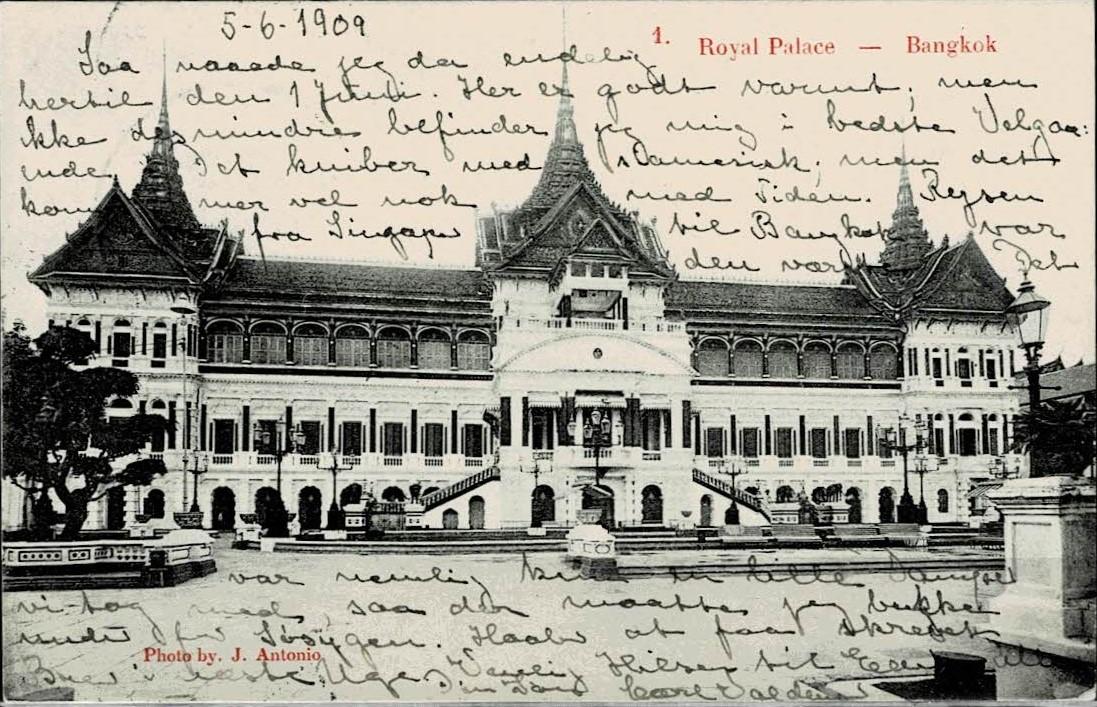 5-6-1909
1. Royal Palace — Bangkok
Saa naaede jeg da endelig
hertil den 1 Juni. Her er godt varmt, men
ikke des mindre befinder jeg mig i bedste Velgaa=
ende. Det kniber med Siamesisk, men det
kommer vel nok med Tiden. Rejsen
fra Singapor til Bangkok var
den værste Det
var nemlig kun en lille Damper
vi tog med, saa da maatte jeg bukke
under for Søsygen. Haaber at faa skrevet
Photo by. J. Antonio
Brev i næste Uge. Venlig Hilsen til
Carl